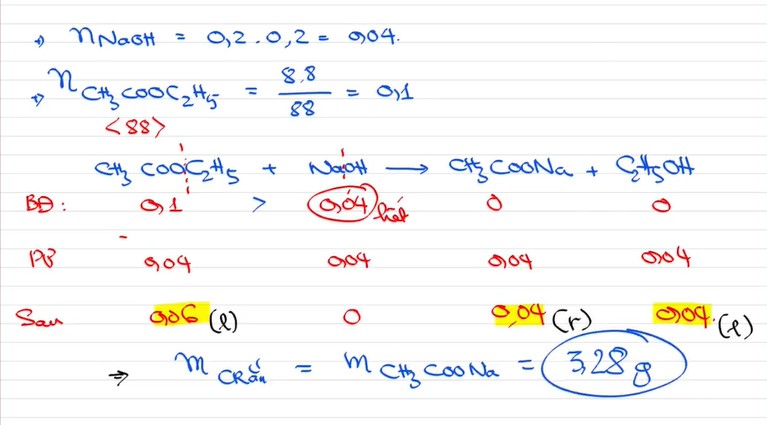 → nNaOH = 0,2 . 0,2 = 0,04.
→ nCH3COOC2H5 = 8.8/88 = 0,1
<88>
CH3COOC2H5 + NaOH → CH3COONa + C2H5OH
BĐ: 0,1 > 0,04 hết 0 0
PƯ 0,04 0,04 0,04 0,04
Sau 0,06 (l) 0 0,04 (r) 0,04. (l)
⇒ mCRắn = mCH3COONa = 3,28 g